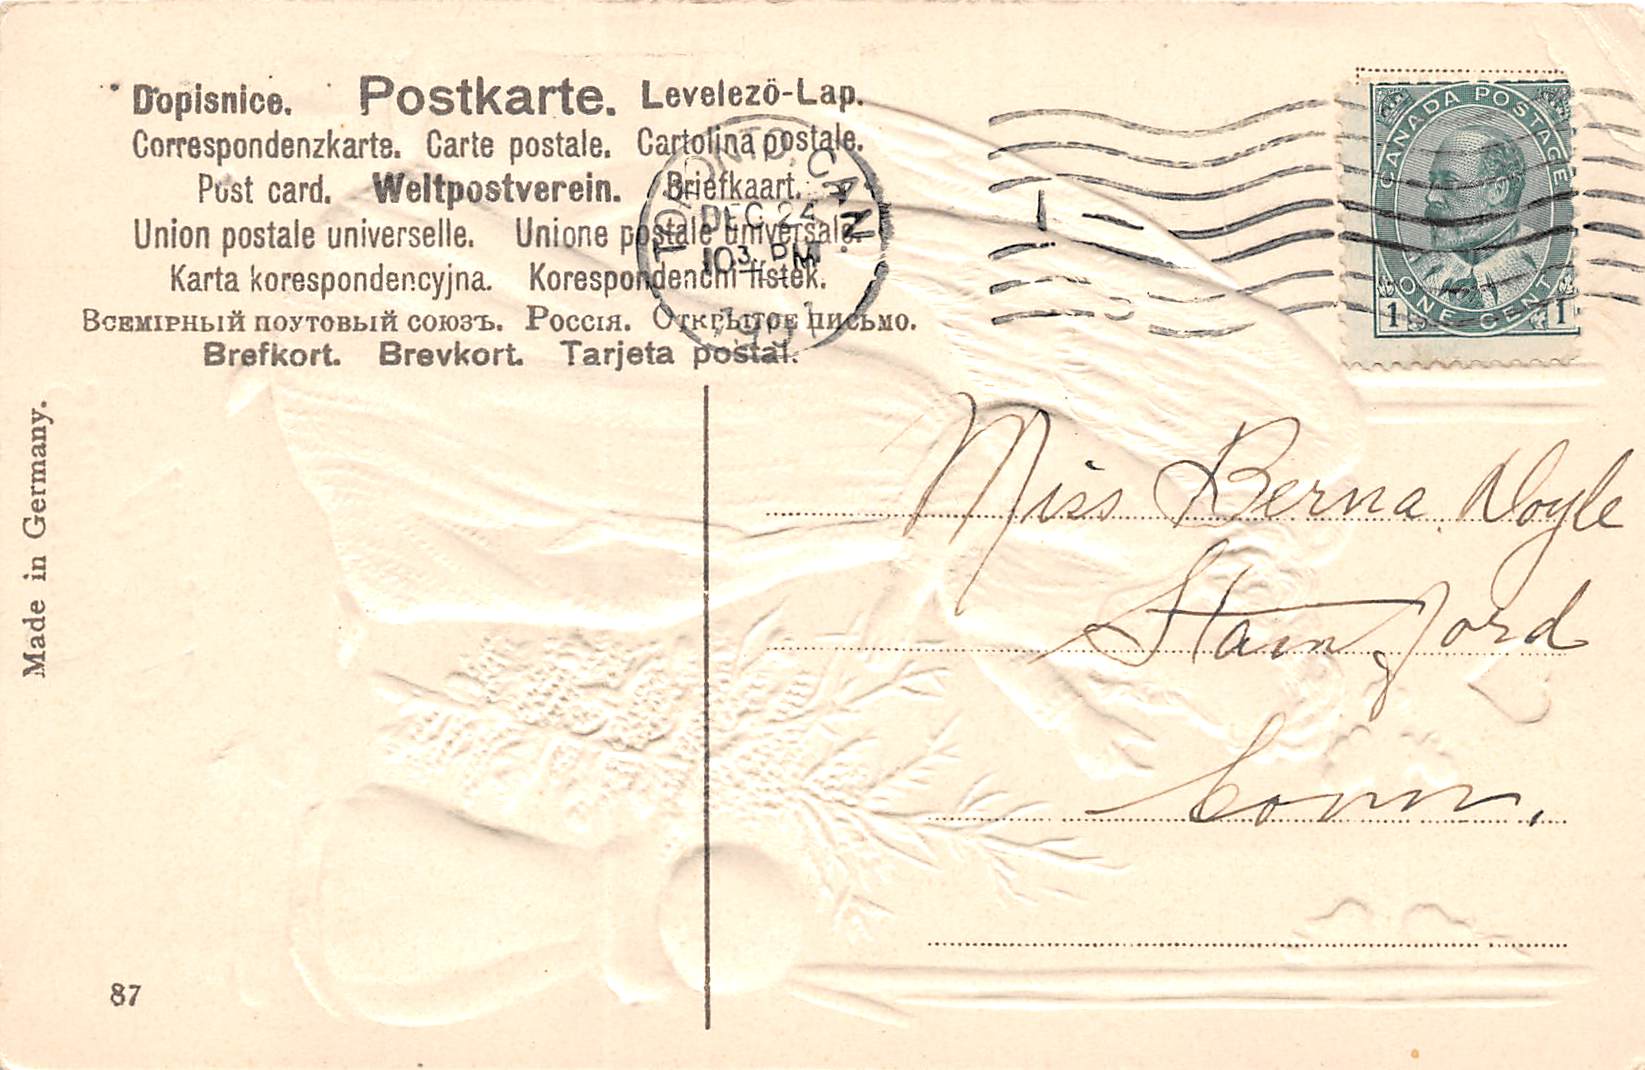 Dopisnice. Postkarte. Levelező-Lap.
Correspondenzkarte. Carte postale. Cartolina postale.
Post card. Weltpostverein. Briefkaart.
Union postale universelle. Unione postale universale.
Karta korespondencyjna. Korespondenchi listek.
Всемірный поутовый союзъ. Россія. Открытое письмо.
Brefkort. Brevkort. Tarjeta postal.
TORONTO, CAN.
DEC 24
10 30 PM
CANADA POSTAGE
ONE CENT
1 1
Miss Berna Doyle
Stamford
Conn.
Made in Germany.
87